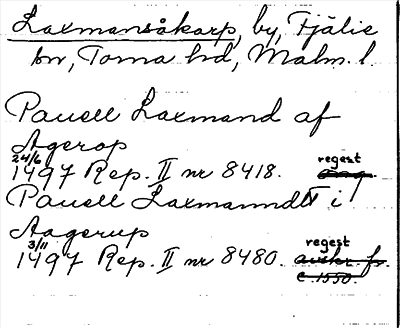 Laxmansåkarp, by, Fjälie
sn, Torna hd, Malm. l.
Pauell Laxmand af
Agerop
24/6 regest
1497 Rep. II nr 8418. ang.
Pauell Laxmanndt i
Aagerup
3/11 regest
1497 Rep. II nr 8480. avskr. fr.
c. 1550.